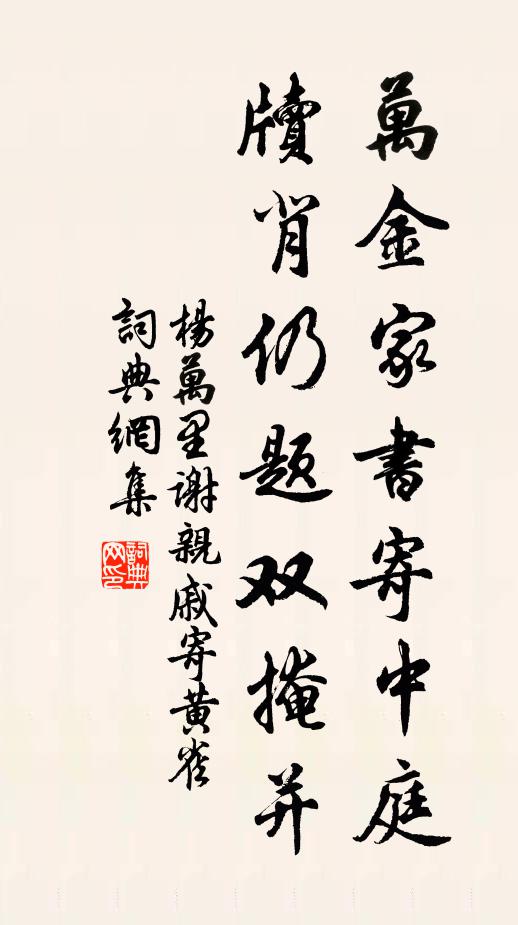 萬金家書寄中庭
牘背仍題双掩并
楊萬里謝親戚寄黄雀
詞典網集
詞典网印